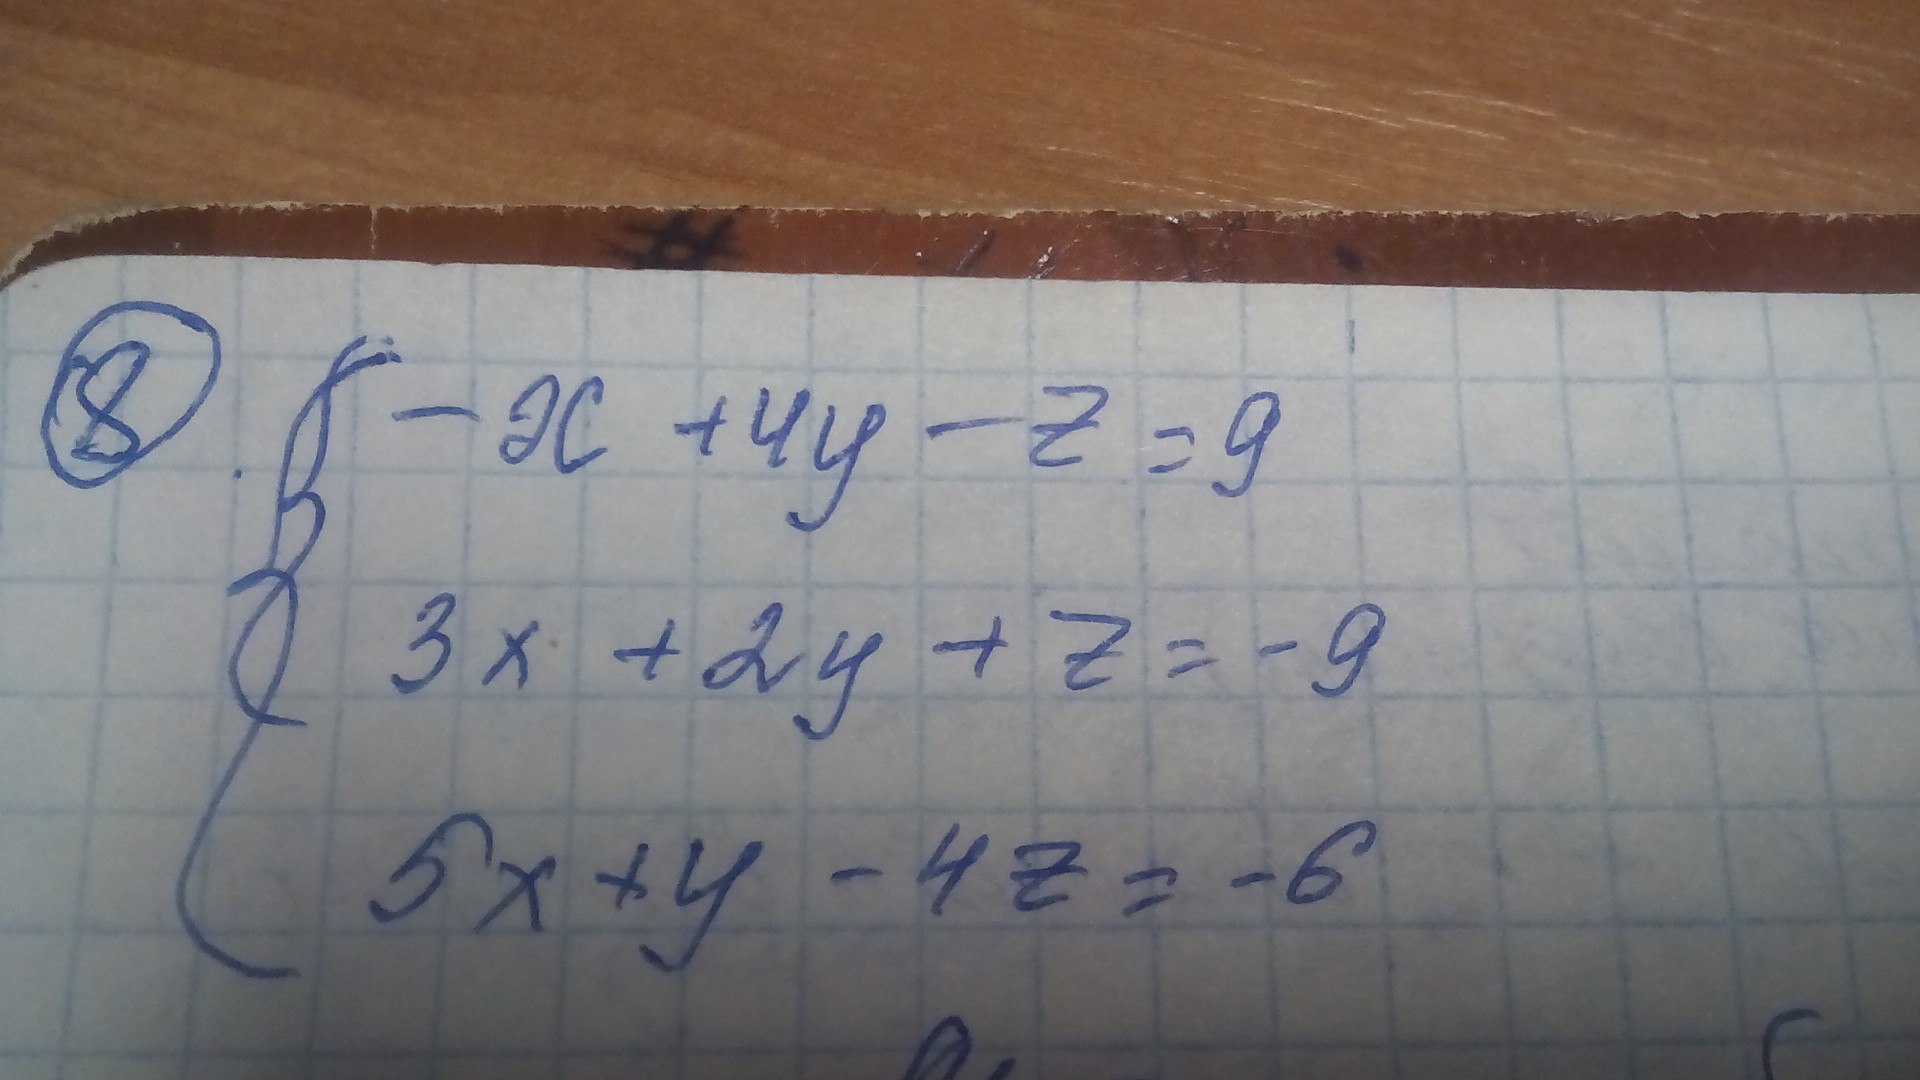 8
-x + 4y - z = 9
3x + 2y + z = -9
5x + y - 4z = -6